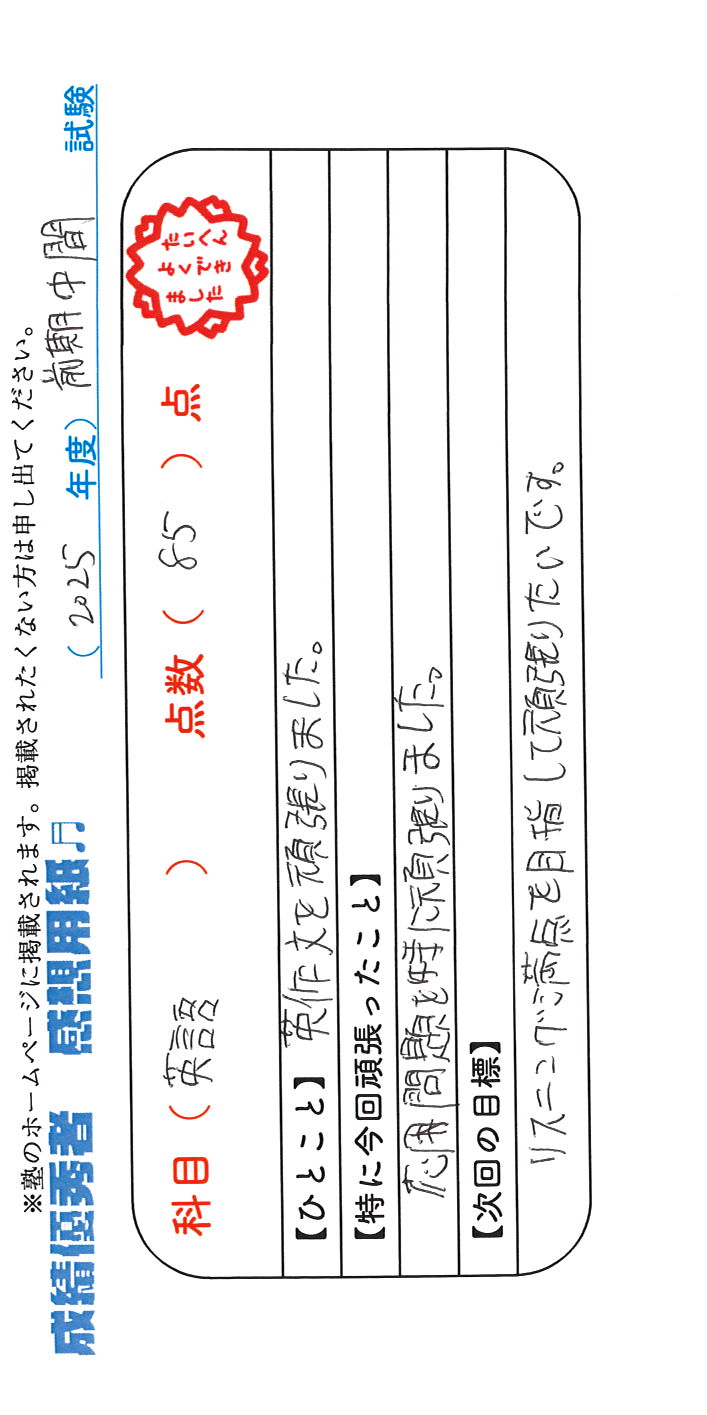 ※塾のホームページに掲載されます。掲載されたくない方は申し出てください。
成績優秀者 感想用紙♫ (2025 年度) 前期中間 試験
科目 ( 英語 ) 点数 ( 85 ) 点
たいへん
よくでき
ました
【ひとこと】 英作文を頑張りました。
【特に今回頑張ったこと】
応用問題を特に頑張りました。
【次回の目標】
リスニングで満点を目指して頑張りたいです。